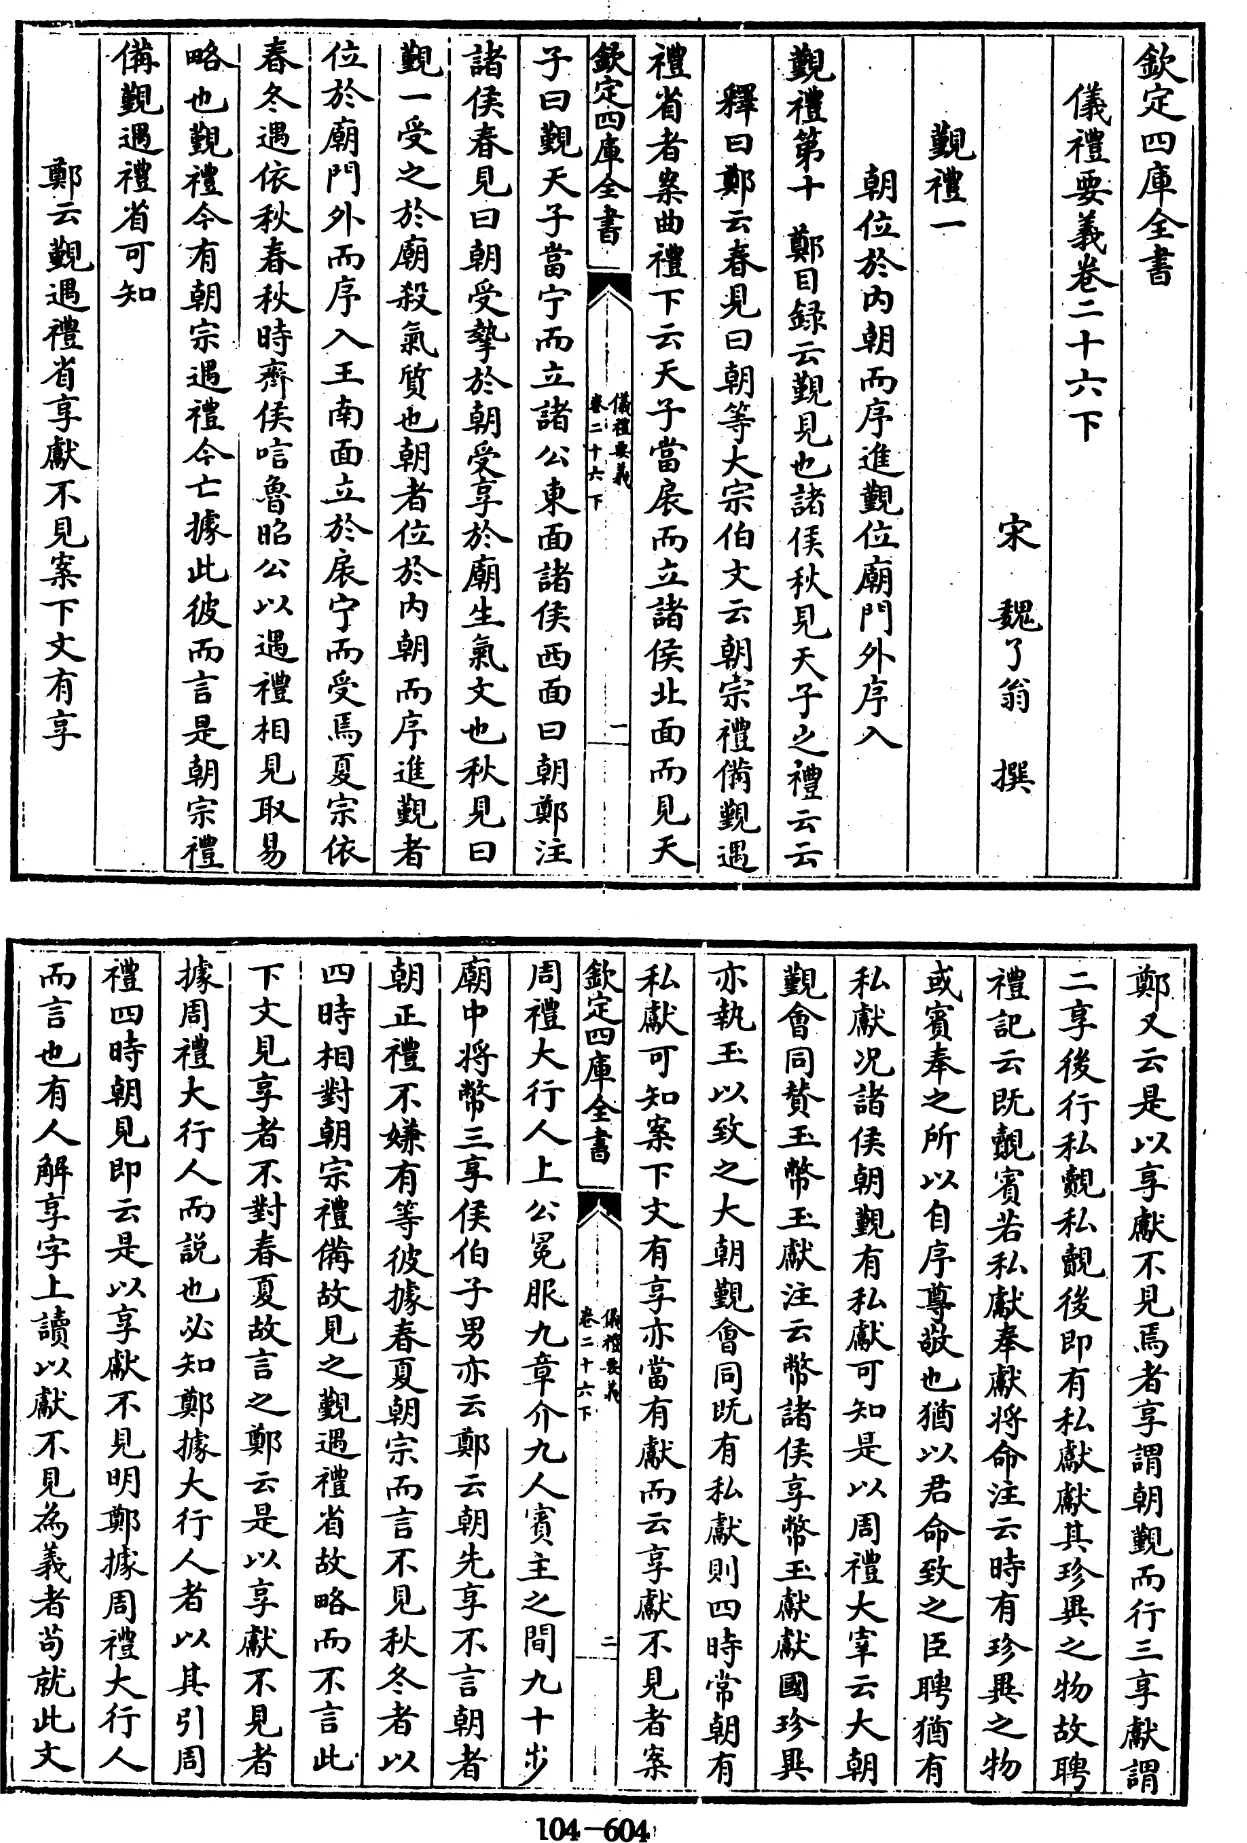 欽定四庫全書
儀禮要義卷二十六下
宋　魏了翁　撰
覲禮一
朝位於內朝而序進覲位廟門外序入
覲禮第十　鄭目録云覲見也諸侯秋見天子之禮云云
釋曰鄭云春見曰朝等大宗伯文云朝宗禮備覲遇
禮省者案曲禮下云天子當扆而立諸侯北面而見天
欽定四庫全書
儀禮要義
卷二十六下
一
子曰覲天子當宁而立諸公東面諸侯西面曰朝鄭注
諸侯春見曰朝受摯於朝受享於廟生氣文也秋見曰
覲一受之於廟殺氣質也朝者位於內朝而序進覲者
位於廟門外而序入王南面立於扆宁而受焉夏宗依
春冬遇依秋春秋時齊侯唁魯昭公以遇禮相見取易
略也覲禮今有朝宗遇禮今亡據此彼而言是朝宗禮
備覲遇禮省可知
鄭云覲遇禮省享獻不見案下文有享
鄭又云是以享獻不見焉者享謂朝覲而行三享獻謂
二享後行私覿私覿後即有私獻獻其珍異之物故聘
禮記云既覿賓若私獻奉獻將命注云時有珍異之物
或賓奉之所以自序尊敬也猶以君命致之臣聘猶有
私獻况諸侯朝覲有私獻可知是以周禮大宰云大朝
覲會同贊玉幣玉獻注云幣諸侯享幣玉獻獻國珍異
亦執玉以致之大朝覲會同既有私獻則四時常朝有
私獻可知案下文有享亦當有獻而云享獻不見者案
欽定四庫全書
儀禮要義
卷二十六下
二
周禮大行人上公冕服九章介九人賓主之間九十步
廟中将幣三享侯伯子男亦云鄭云朝先享不言朝者
朝正禮不嫌有等彼據春夏朝宗而言不見秋冬者以
四時相對朝宗禮備故見之覲遇禮省故略而不言此
下文見享者不對春夏故言之鄭云是以享獻不見者
據周禮大行人而説也必知鄭據大行人者以其引周
禮四時朝見即云是以享獻不見明鄭據周禮大行人
而言也有人解享字上讀以獻不見為義者苟就此文
104-604